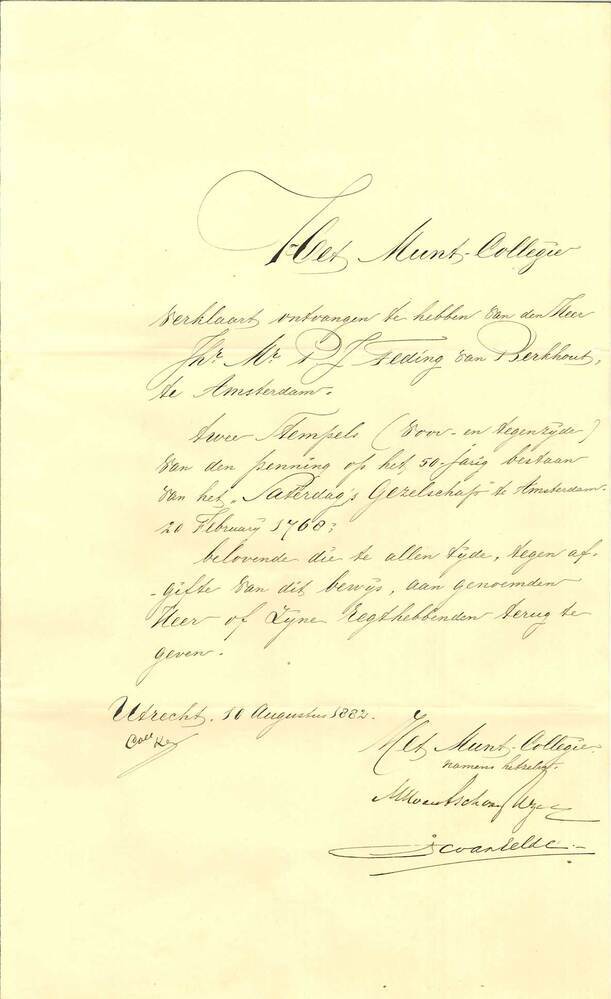 Het Munt-Collegie
verklaart ontvangen te hebben van den Heer
Jhr. Mr. P J Teding van Berkhout,
te Amsterdam.
twee Stempels (voor- en tegenzyde)
van den penning op het 50-jarig bestaan
van het "Saterdag's Gezelschap" te Amsterdam.
20 February 1768;
belovende die te allen tyde, tegen af-
-gifte van dit bewys, aan genoemden
Heer of Zyne Regthebbenden terug te
geven.
Utrecht. 10 Augustus 1882.
Coll
Het Munt-Collegie.
namens hetzelve.